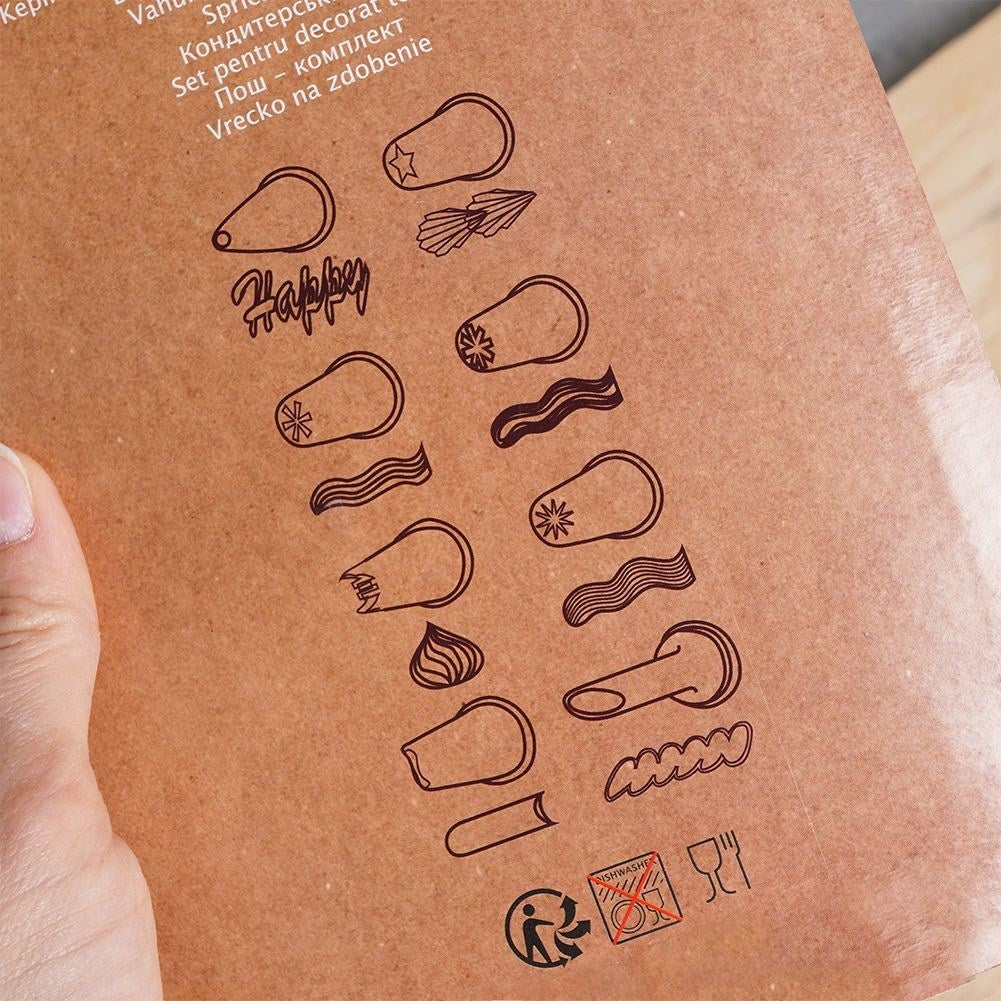 Кондитерськ
Set pentru decorat to
Пош - комплект
Vrecko na zdobenie
Happy
DISHWASHER